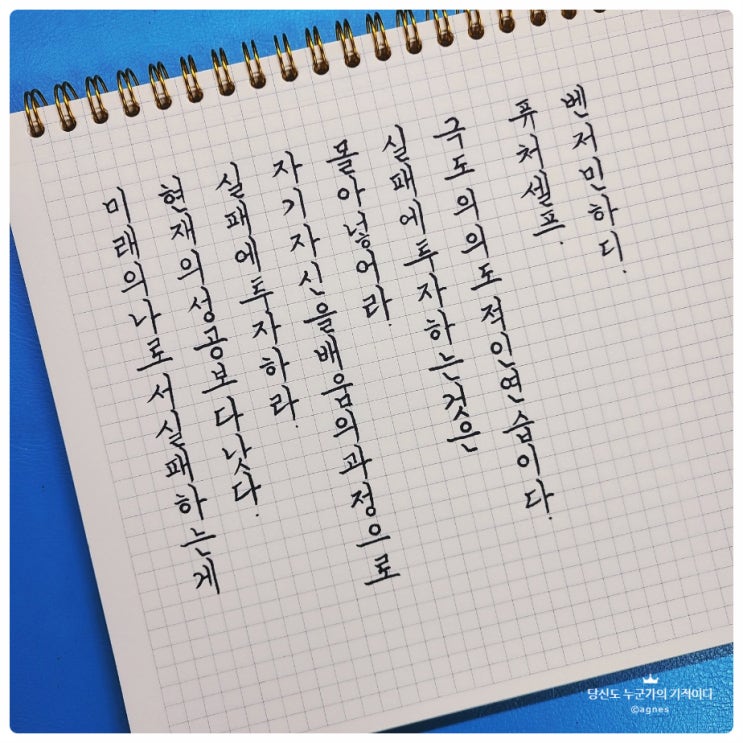 미래의 나로서 실패하는 게
현재의 성공보다 낫다.
실패에 투자하라.
자기자신을 배움의 과정으로
몰아넣어라.
실패에 투자하는 것은
극도의 의도적인 연습이다.
퓨처셀프.
벤저민 하디.
당신도 누군가의 기적이다
©agnes